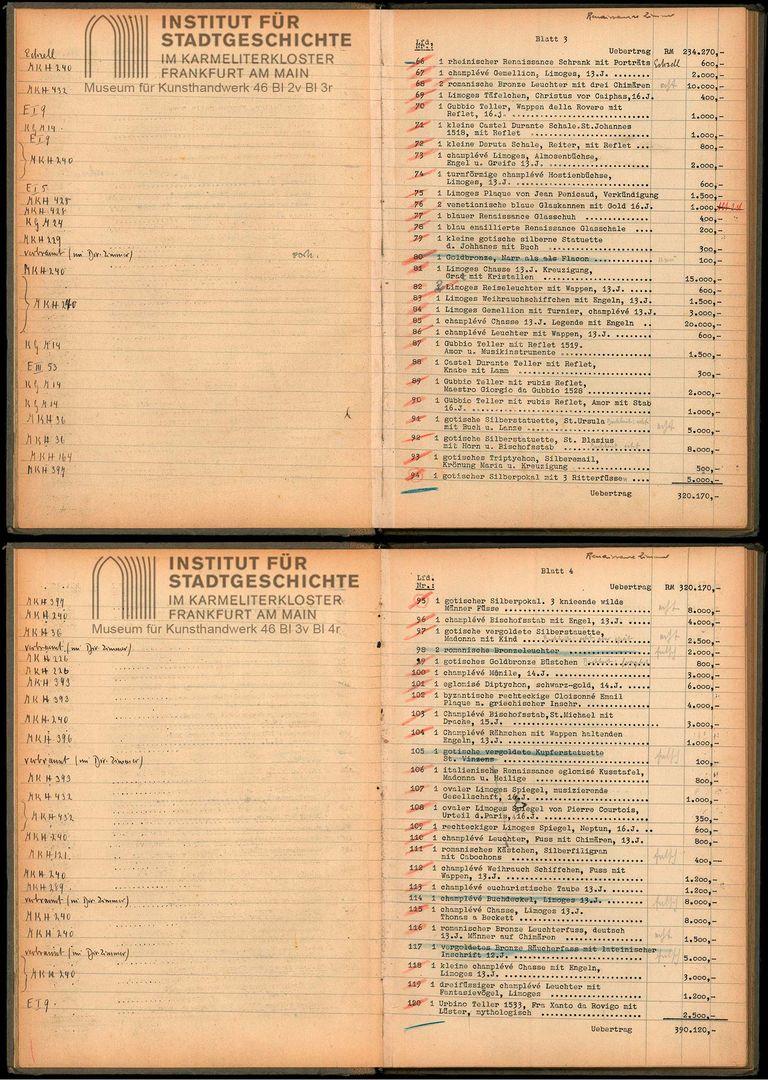 INSTITUT FÜR
STADTGESCHICHTE
IM KARMELITERKLOSTER
FRANKFURT AM MAIN
Museum für Kunsthandwerk 46 Bl 2v Bl 3r
Schrell
MKH 240
MKH 432
E I 9
K G M 14.
E I 9
MKH 240
E I 5
MKH 428
MKH 428
MKH 229
verbrannt (im Dir-Zimmer)
MKH 240
MKH 240
K G M 14
E III 53
K G M 14
K G M 14
MKH 36
MKH 36
MKH 164
MKH 394
vorh.
Renaissance Zimmer
Blatt 3
Lfd.
Nr.:
Uebertrag RM 234.270,-
66 1 rheinischer Renaissance Schrank mit Porträts Schrell 600,-
67 1 champlévé Gemellion, Limoges, 13.J. ........ 2.000,-
68 2 romanische Bronze Leuchter mit drei Chimären echt 10.000,-
69 1 Limoges Täfelchen, Christus vor Caiphas,16.J. 400,-
70 1 Gubbio Teller, Wappen della Rovere mit
Reflet, 16.J. 1.000,-
71 1 kleine Castel Durante Schale.St.Johannes
1518, mit Reflet 1.000,-
72 1 kleine Deruta Schale, Reiter, mit Reflet ... 800,-
73 1 champlévé Limoges, Almosenbüchse,
Engel u. Greife 13.J. 2.000,-
74 1 turmförmige champlévé Hostienbüchse,
Limoges, 13.J. 600,-
75 1 Limoges Plaque von Jean Penicaud, Verkündigung 1.500,-
76 2 venetianische blaue Glaskannen mit Gold 16.J. 1.000,
77 1 blauer Renaissance Glasschuh 400,-
78 1 blau emaillierte Renaissance Glasschale .... 200,-
79 1 kleine gotische silberne Statuette
d. Johhanes mit Buch 300,-
80 1 Goldbronze, Narr als als Flacon 100,-
81 1 Limoges Chasse 13.J. Kreuzigung,
Grad mit Kristallen 15.000,-
82 2 Limoges Reiseleuchter mit Wappen, 13.J. ..... 600,-
83 1 Limoges Weihrauchschiffchen mit Engeln, 13.J. 1.500,-
84 1 Limoges Gemellion mit Turnier, champlévé 13.J. 3.000,-
85 1 champlévé Chasse 13.J. Legende mit Engeln .. 20.000,-
86 1 champlévé Leuchter mit Wappen, 13.J. ....... 600,-
87 1 Gubbio Teller mit Reflet 1519.
Amor u. Musikinstrumente 1.500,-
88 1 Castel Durante Teller mit Reflet,
Knabe mit Lamm 300,-
89 1 Gubbio Teller mit rubis Reflet,
Maestro Giorgio da Gubbio 1528 2.000,-
90 1 Gubbio Teller mit rubis Reflet, Amor mit Stab
16.J. 1.000,-
91 1 gotische Silberstatuette, St.Ursula
mit Buch u. Lanze echt 5.000,-
92 1 gotische Silberstatuette, St. Blasius
mit Horn u. Bischofsstab 8.000,-
93 1 gotisches Triptychon, Silberemail,
Krönung Maria u. Kreuzigung 500,-
94 1 gotischer Silberpokal mit 3 Ritterfüssen .... 5.000,-
Uebertrag 320.170,-
INSTITUT FÜR
STADTGESCHICHTE
IM KARMELITERKLOSTER
FRANKFURT AM MAIN
Museum für Kunsthandwerk 46 Bl 3v Bl 4r
MKH 394
MKH 240
MKH 36
verbrannt (im Dir-Zimmer)
MKH 226
MKH 226
MKH 393
MKH 393
MKH 240
MKH 396
verbrannt (im Dir-Zimmer)
MKH 393
MKH 432
MKH 432
MKH 240
MKH 121.
MKH 240
MKH 289.
verbrannt (im Dir-Zimmer)
MKH 240
MKH 240
verbrannt (im Dir-Zimmer)
MKH 240
E I 9.
Renaissance Zimmer
Blatt 4
Lfd.
Nr.:
Uebertrag RM 320.170,-
95 1 gotischer Silberpokal. 3 knieende wilde
Männer Füsse echt 8.000,-
96 1 champlévé Bischofsstab mit Engel, 13.J. 4.000,-
97 1 gotische vergoldete Silberstatuette,
Madonna mit Kind echt 2.500,-
98 2 romanische Bronzeleuchter 2.000,-
99 1 gotisches Goldbronze Büstchen 800,-
100 1 champlévé Monile, 14.J. 3.000,-
101 1 eglonisé Diptychon, schwarz-gold, 14.J. 6.000,-
102 1 byzantische rechteckige Cloisonné Email
Plaque m. griechischer Inschr. 4.000,-
103 1 Champlévé Bischofsstab,St.Michael mit
Drache, 15.J. 3.000,-
104 1 Champlévé Rähmchen mit Wappen haltenden
Engeln, 13.J. 1.000,-
105 1 gotische vergoldete Kupferstatuette
St. Vinzens falsch 100,-
106 1 italienische Renaissance eglomisé Kusstafel,
Madonna u. Heilige 800,-
107 1 ovaler Limoges Spiegel, musizierende
Gesellschaft, 16.J. 1.000,-
108 1 ovaler Limoges Spiegel von Pierre Courtois,
Urteil d.Paris, 16.J. 350,-
109 1 rechteckiger Limoges Spiegel, Neptun, 16.J. .. 600,-
110 1 champlévé Leuchter, Fuss mit Chimären, 13.J. 800,-
111 1 romanisches Kästchen, Silberfiligran
mit Cabochons falsch 400,-
112 1 champlévé Weihrauch Schiffchen, Fuss mit
Wappen, 13.J. 1.200,-
113 1 champlévé eucharistische Taube 13.J. 1.200,-
114 1 champlévé Buchdeckel, Limoges 13.J. falsch 8.000,-
115 1 champlévé Chasse, Limoges 13.J.
Thomas a Beckett 8.000,-
116 1 romanischer Bronze Leuchterfuss, deutsch
13.J. Männer auf Chimären echt 1.500,-
117 1 vergoldetes Bronze Räucherfass mit lateinischer
Inschrift 12.J. falsch 5.000,-
118 1 kleine champlévé Chasse mit Engeln,
Limoges 13.J. 3.000,-
119 1 dreifüssiger champlévé Leuchter mit
Fantasievögel, Limoges 1.200,-
120 1 Urbino Teller 1533, Fra Xanto da Rovigo mit
Lüster, mythologisch 2.500,-
Uebertrag 390.120,-